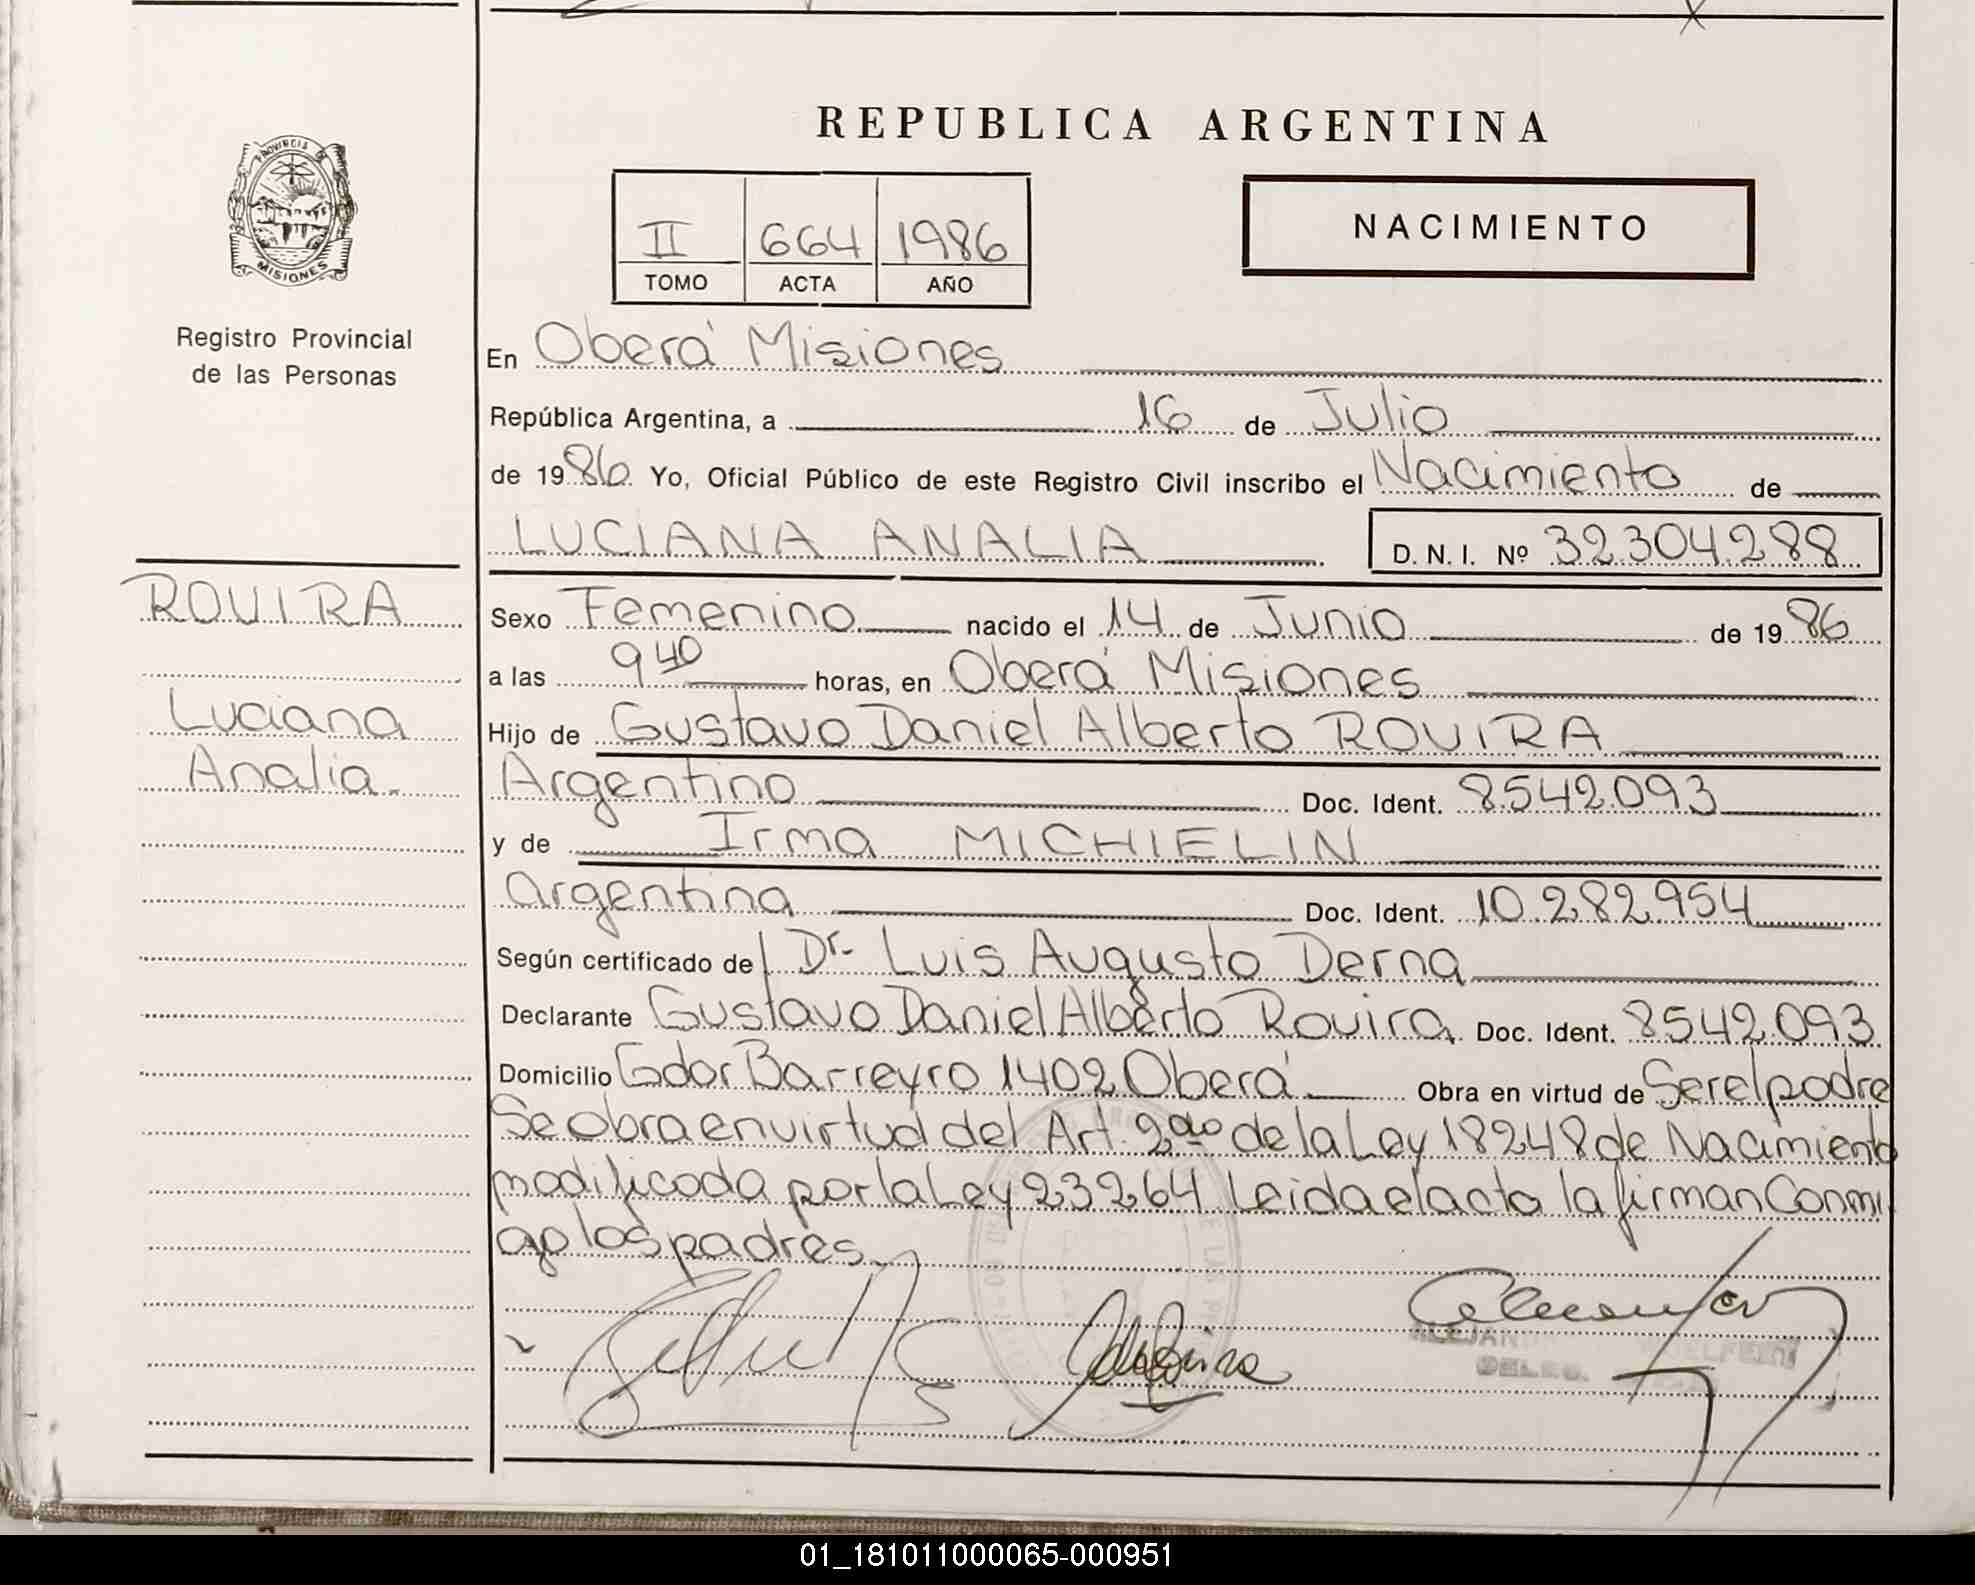 REPUBLICA ARGENTINA
PROVINCIA DE
MISIONES
II 664 1986
TOMO ACTA AÑO
NACIMIENTO
Registro Provincial
de las Personas
ROVIRA
Luciana
Analia.
En Oberá Misiones
República Argentina, a 16 de Julio
de 1986. Yo, Oficial Público de este Registro Civil inscribo el Nacimiento de
LUCIANA ANALIA D. N. I. Nº 32.304.288
Sexo Femenino nacido el 14 de Junio de 1986
a las 9 40 horas, en Oberá Misiones
Hijo de Gustavo Daniel Alberto ROVIRA
Argentino Doc. Ident. 8.542.093
y de Irma MICHIELIN
argentina Doc. Ident. 10.282.954
Según certificado de Dr. Luis Augusto Derna
Declarante Gustavo Daniel Alberto Rovira Doc. Ident. 8542.093
Domicilio Gdor Barreyro 1402 Oberá Obra en virtud de Ser el padre
Se obra en virtud del Art. 2do de la Ley 18248 de Nacimiento
modificada por la Ley 23264 Leida el acta la firman Conmi
go los padres.
01_181011000065-000951